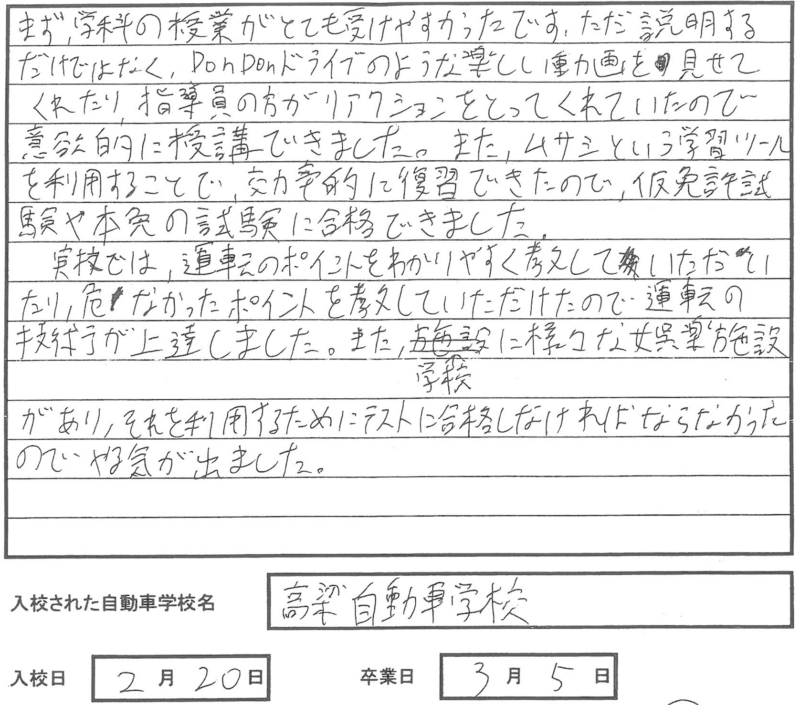 まず、学科の授業がとても受けやすかったです。ただ説明する
だけではなく、DonDonドライブのような楽しい動画を見せて
くれたり、指導員の方がリアクションをとってくれていたので
意欲的に授講できました。また、ムサシという学習ツール
を利用することで、効率的に復習できたので、仮免許試
験や本免の試験に合格できました。
実技では、運転のポイントをわかりやすく教えていただい
たり、危なかったポイントを教えていただけたので運転の
技術が上達しました。また、施設に様々な娯楽施設
学校
があり、それを利用するためにテストに合格しなければならなかった
のでやる気が出ました。
入校された自動車学校名 高梁自動車学校
入校日 2月20日 卒業日 3月5日